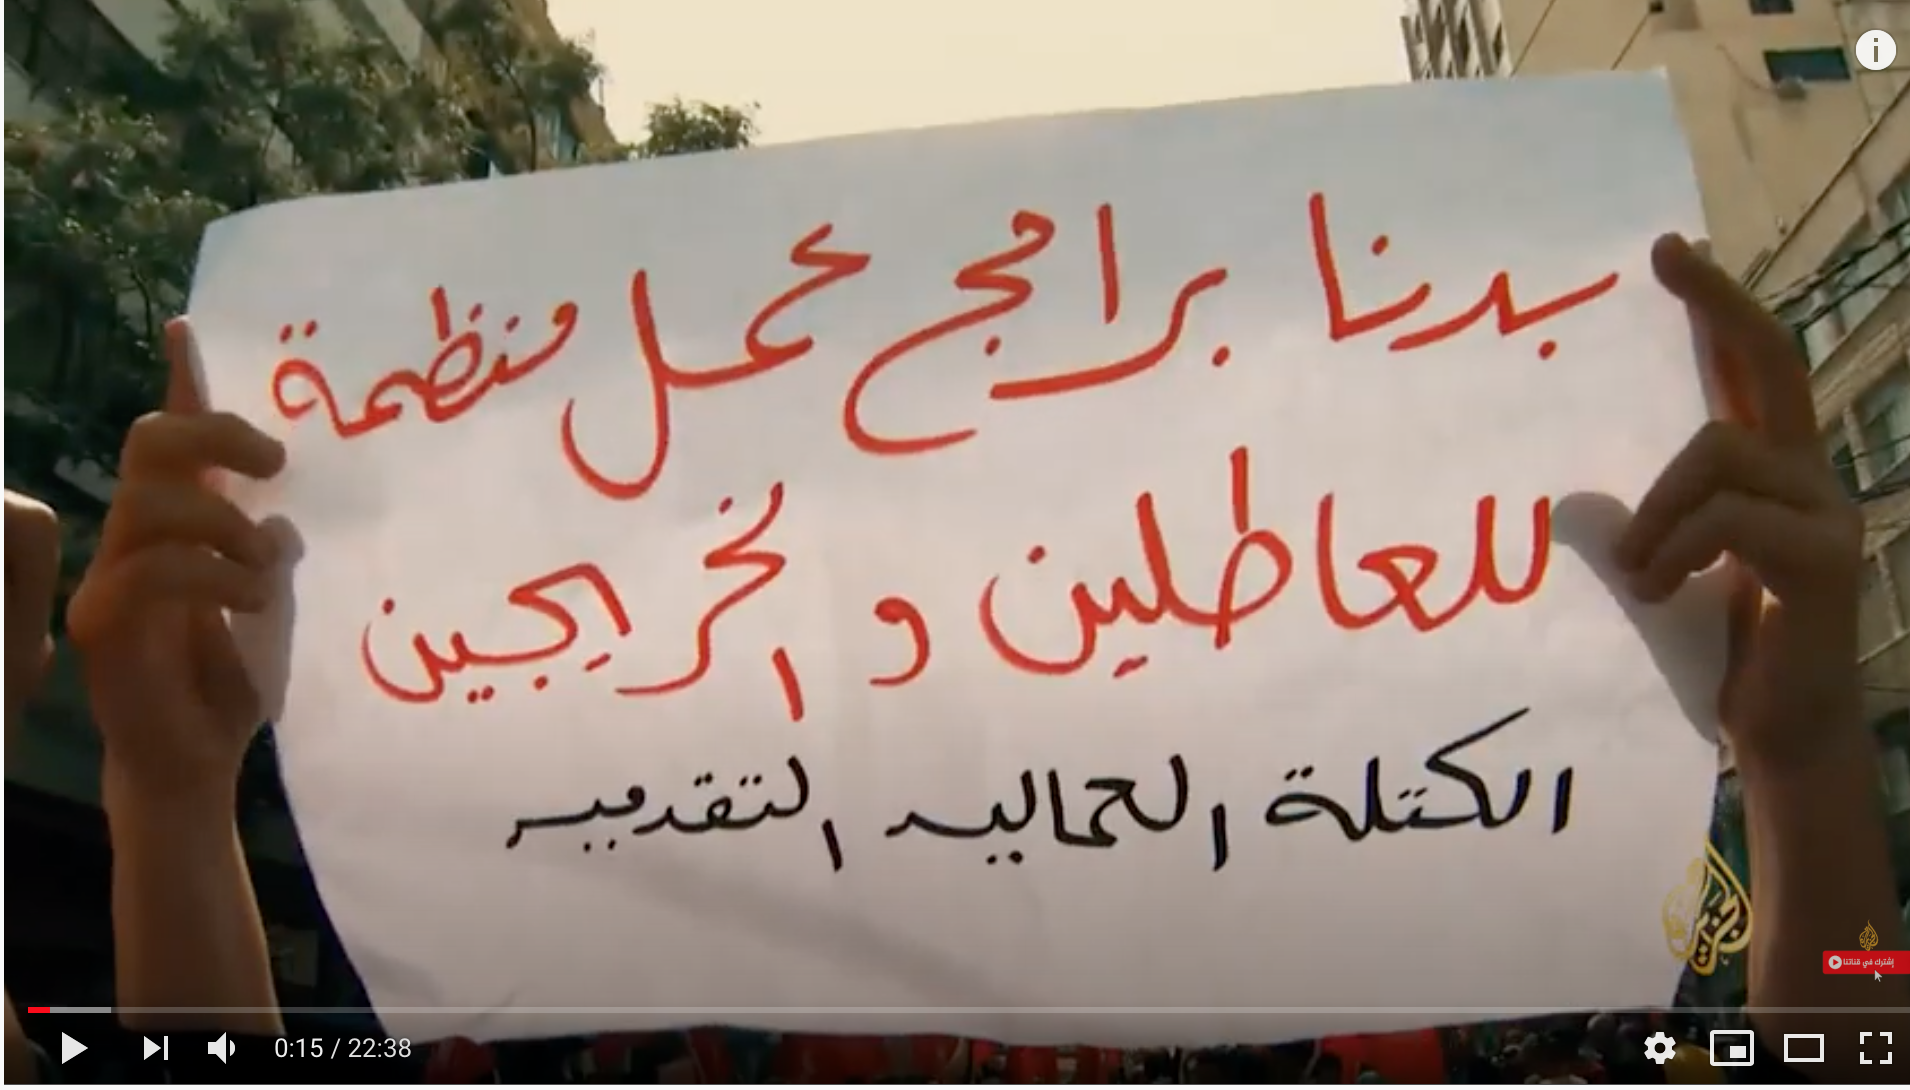 بدنا برامج عمل منظمة
للعاطلين و الخريجين
الكتلة العماليه التقدميه
الجزيرة
إشترك في قناتنا
0:15 / 22:38